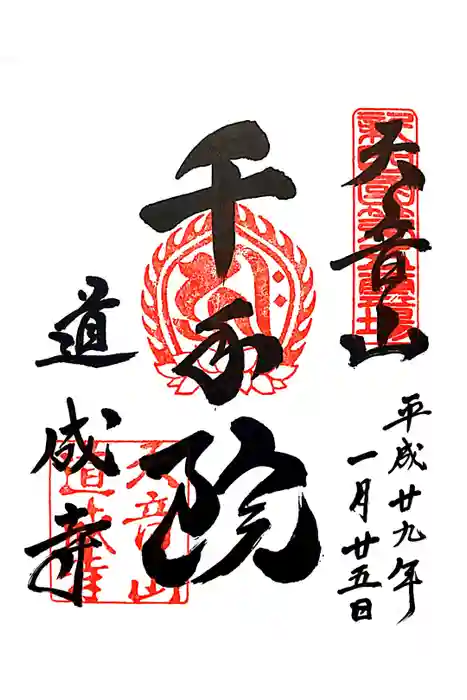 天音山
平成廿九年
一月廿五日
千手院
道成寺
天音山
道成寺